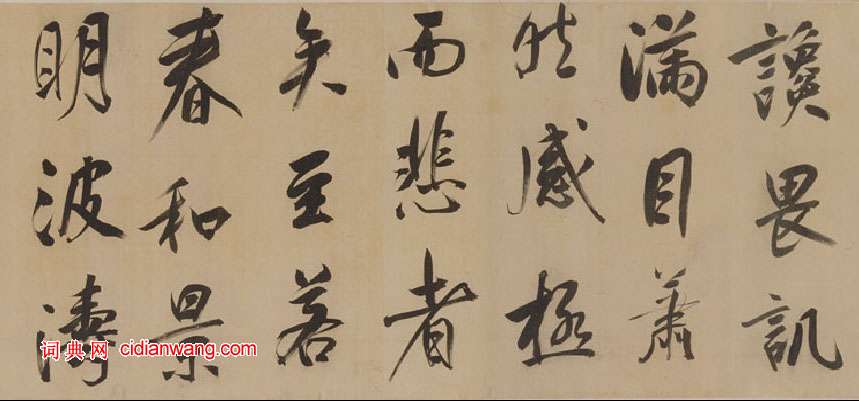 讒畏譏
滿目蕭
然感極
而悲者
矣至若
春和景
明波濤
词典网 cidianwang.com